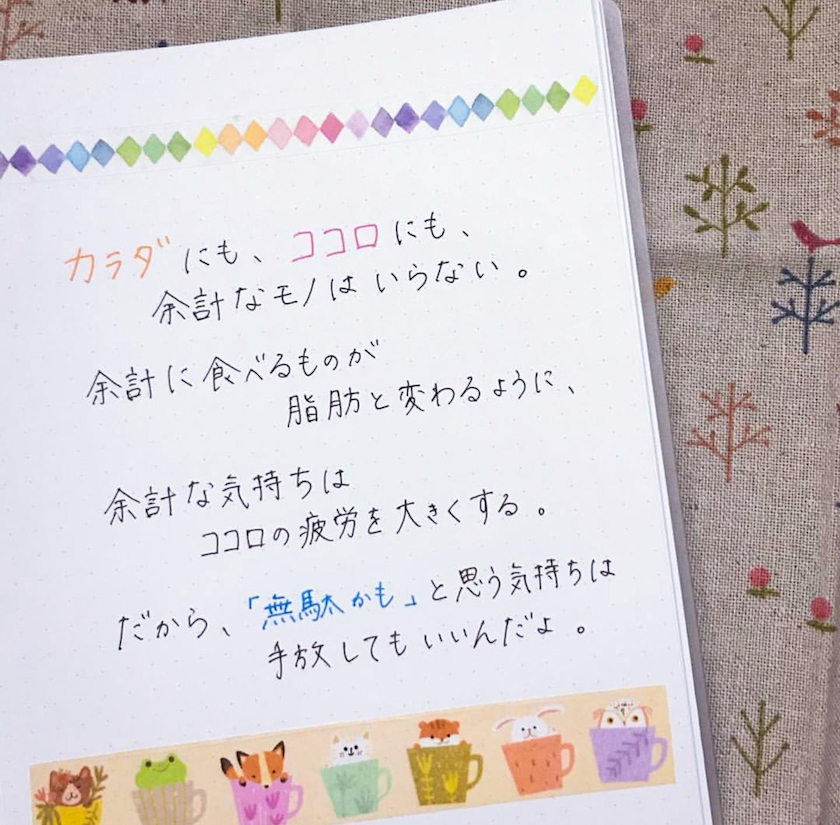 カラダにも、ココロにも、
余計なモノはいらない。
余計に食べるものが
脂肪と変わるように、
余計な気持ちは
ココロの疲労を大きくする。
だから、「無駄かも」と思う気持ちは
手放してもいいんだよ。